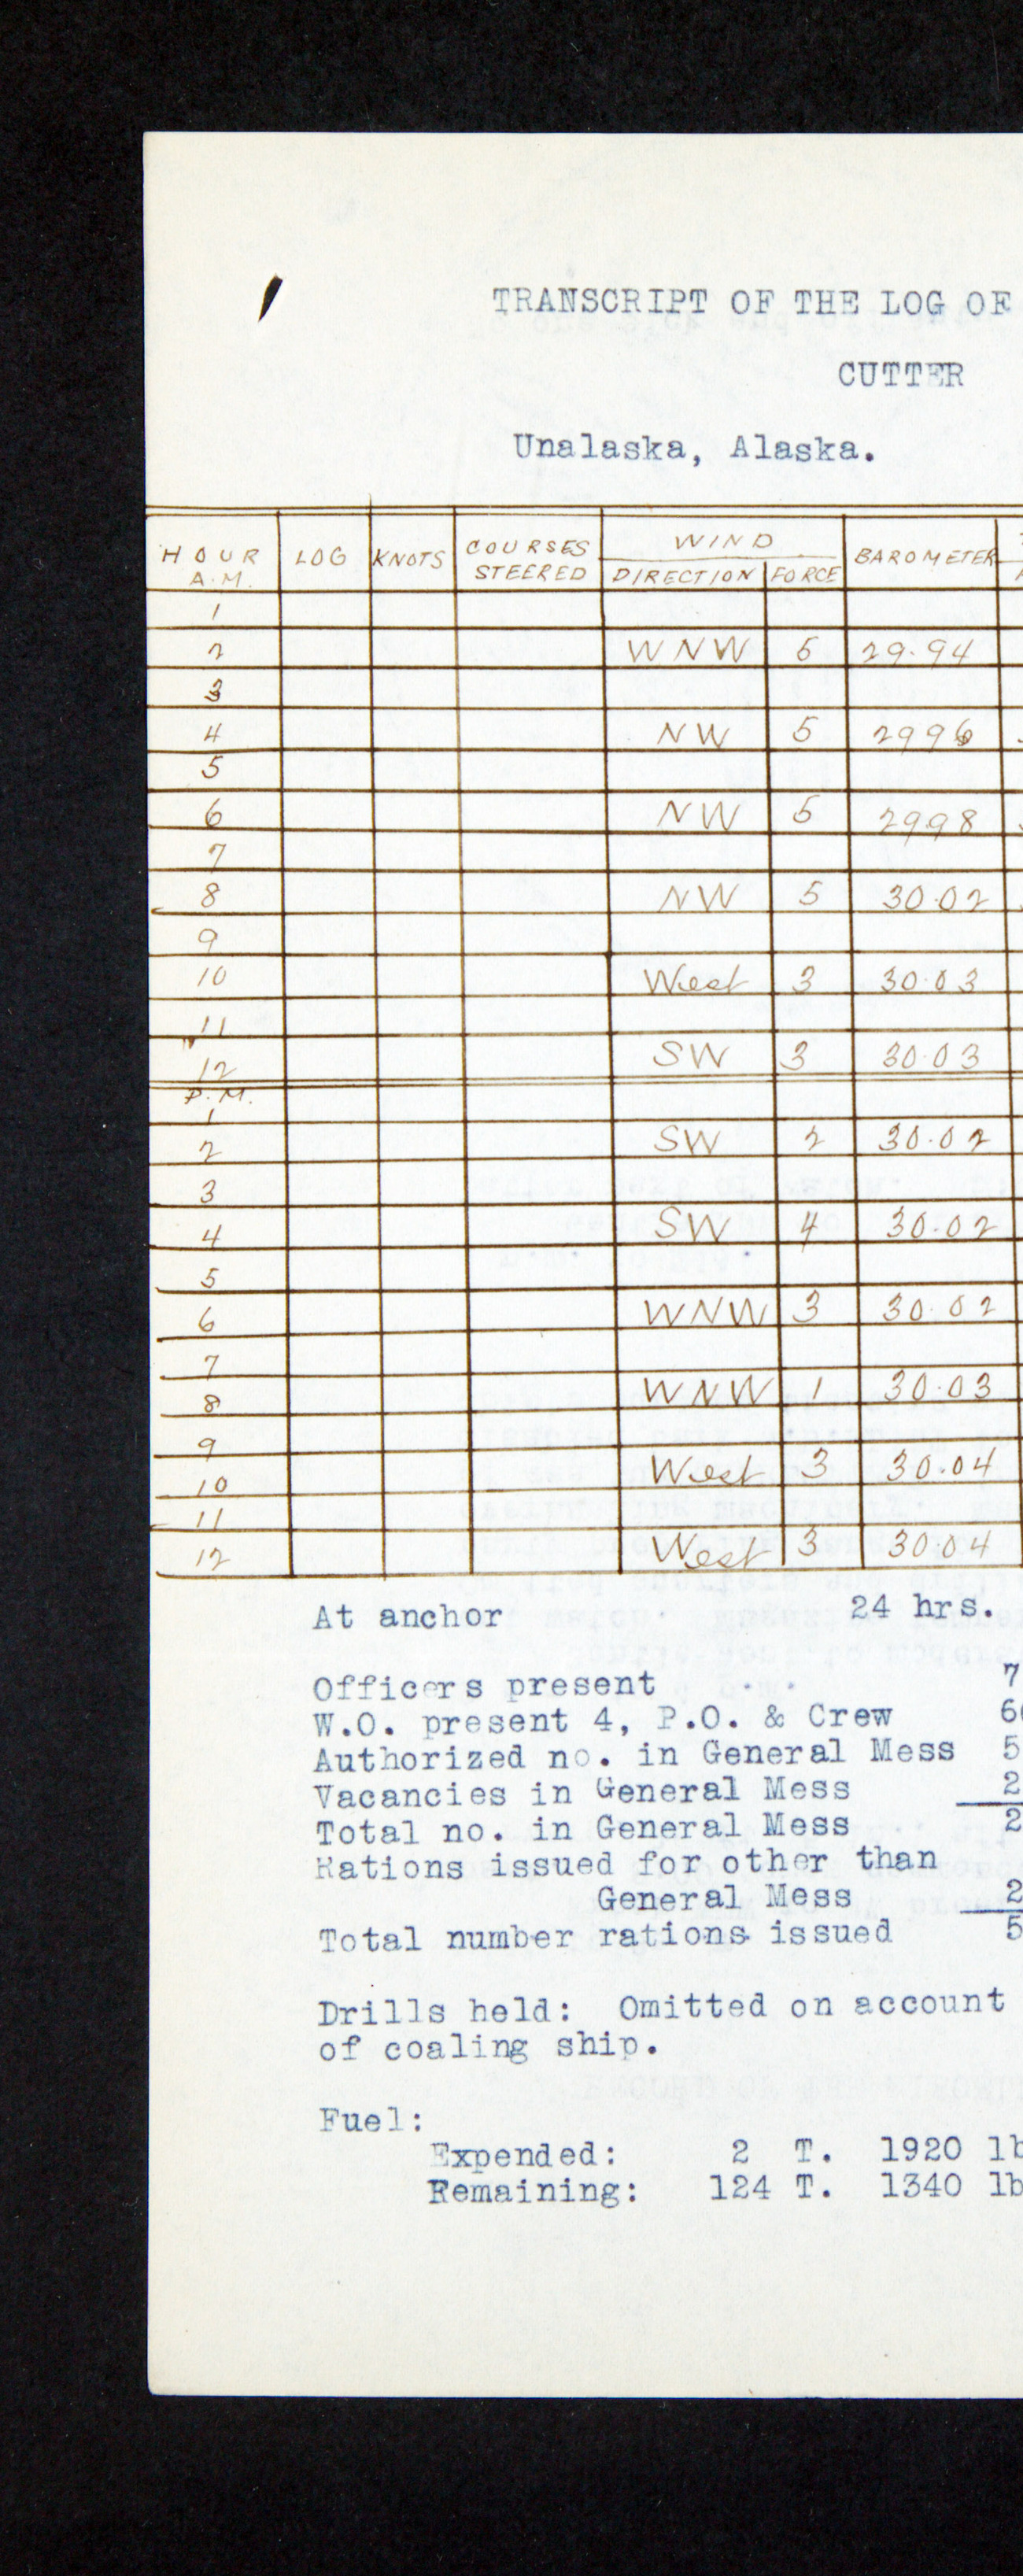 TRANSCRIPT OF THE LOG OF
CUTTER
Unalaska, Alaska.
HOUR LOG KNOTS COURSES WIND BAROMETER
A.M. STEERED DIRECTION FORCE
1
2 WNW 5 29.94
3
4 NW 5 2996
5
6 NW 5 2998
7
8 NW 5 30.02
9
10 West 3 30.03
11
12 SW 3 30.03
P.M.
1
2 SW 2 30.02
3
4 SW 4 30.02
5
6 WNW 3 30.02
7
8 WNW 1 30.03
9
10 West 3 30.04
11
12 West 3 30.04
At anchor 24 hrs.
Officers present 7
W.O. present 4, P.O. & Crew
Authorized no. in General Mess 5
Vacancies in General Mess 2
Total no. in General Mess 2
Rations issued for other than
General Mess 2
Total number rations issued 5
Drills held: Omitted on account
of coaling ship.
Fuel:
Expended: 2 T. 1920 lb
Remaining: 124 T. 1340 lb